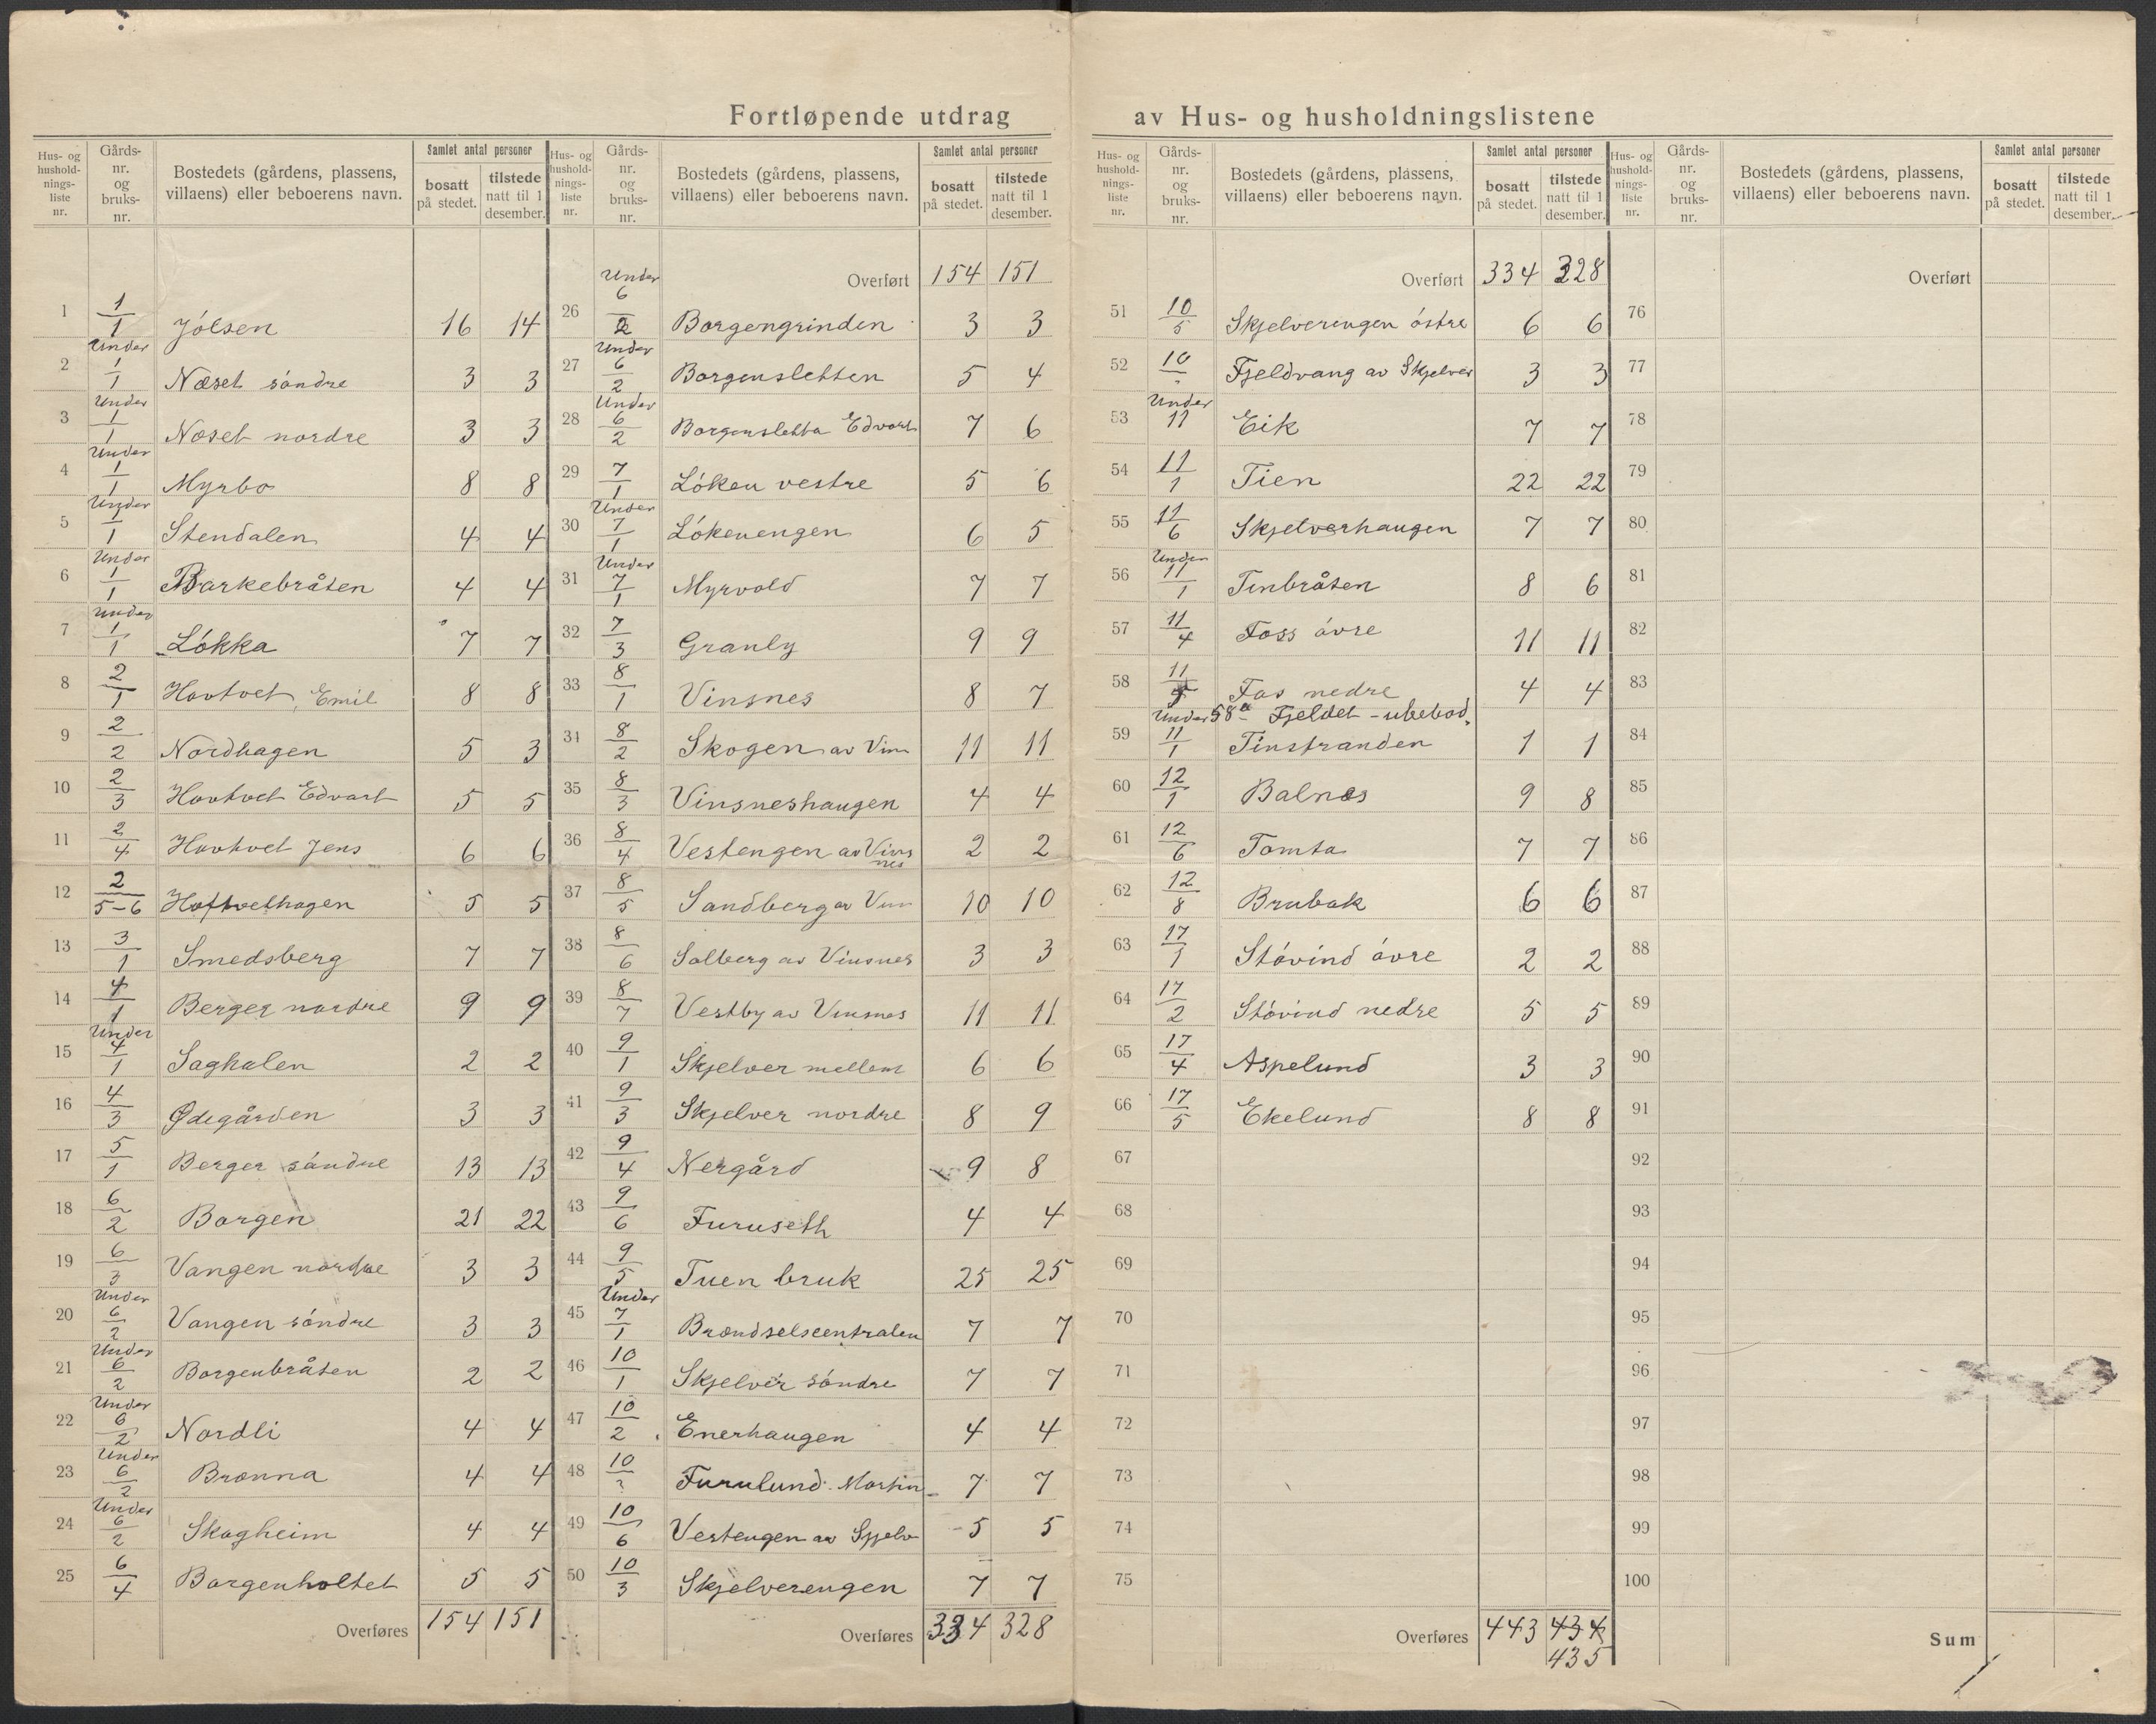 Fortløpende utdrag av Hus- og husholdningslistene
Hus- og hushold-nings-liste nr. | Gårds-nr. og bruks-nr. | Bostedets (gårdens, plassens, villaens) eller beboerens navn. | Samlet antal personer | bosatt på stedet. | tilstede natt til 1 desember.
1 | 1/1 | Jólsen | 16 | 14
2 | Under 1/1 | Næset søndre | 3 | 3
3 | Under 1/1 | Næset nordre | 3 | 3
4 | Under 1/1 | Myrbo | 8 | 8
5 | Under 1/1 | Stendalen | 4 | 4
6 | Under 1/1 | Barkebråten | 4 | 4
7 | Under 1/1 | Lókka | 7 | 7
8 | 2/1 | Hovtvet, Emil | 8 | 8
9 | 2/2 | Nordhagen | 5 | 3
10 | 2/3 | Hovtvet Edvart | 5 | 5
11 | 2/4 | Hovtvet Jens | 6 | 6
12 | 2/5-6 | Hoftvethagen | 5 | 5
13 | 3/1 | Smedsberg | 7 | 7
14 | 4/1 | Berger nordre | 9 | 9
15 | Under 4/1 | Saghalen | 2 | 2
16 | 4/3 | Ødegården | 3 | 3
17 | 5/1 | Berger sóndre | 13 | 13
18 | 6/2 | Borgen | 21 | 22
19 | 6/3 | Vangen nordre | 3 | 3
20 | Under 6/2 | Vangen sóndre | 3 | 3
21 | Under 6/2 | Borgenbråten | 2 | 2
22 | Under 6/2 | Nordli | 4 | 4
23 | Under 6/2 | Brønna | 4 | 4
24 | Under 6/2 | Skogheim | 4 | 4
25 | 6/4 | Borgenholtet | 5 | 5
Overføres | 154 | 151
Hus- og hushold-nings-liste nr. | Gårds-nr. og bruks-nr. | Bostedets (gårdens, plassens, villaens) eller beboerens navn. | Samlet antal personer | bosatt på stedet. | tilstede natt til 1 desember.
Overført | 154 | 151
26 | Under 6/2 | Borgengrinden | 3 | 3
27 | Under 6/2 | Borgensletten | 5 | 4
28 | Under 6/2 | Borgensletta Edvart | 7 | 6
29 | 7/1 | Lóken vestre | 5 | 6
30 | Under 7/1 | Lókenengen | 6 | 5
31 | Under 7/1 | Myrvold | 7 | 7
32 | 7/3 | Granly | 9 | 9
33 | 8/1 | Vinsnes | 8 | 7
34 | 8/2 | Skogen av Vins | 11 | 11
35 | 8/3 | Vinsneshaugen | 4 | 4
36 | 8/4 | Vestengen av Vinsnes | 2 | 2
37 | 8/5 | Sandberg av Vin | 10 | 10
38 | 8/6 | Solberg av Vinsnes | 3 | 3
39 | 8/7 | Vestby av Vinsnes | 11 | 11
40 | 9/1 | Skjelver mellem | 6 | 6
41 | 9/3 | Skjelver nordre | 8 | 9
42 | 9/4 | Nergård | 9 | 8
43 | 9/6 | Furuseth | 4 | 4
44 | 9/5 | Tuen bruk | 25 | 25
45 | Under 7/1 | Brændselscentralen | 7 | 7
46 | 10/1 | Skjelver sóndre | 7 | 7
47 | 10/2 | Enerhaugen | 4 | 4
48 | 10/? | Furulund Martin | 7 | 7
49 | 10/6 | Vestengen av Sjelv | 5 | 5
50 | 10/3 | Skjelverengen | 7 | 7
Overføres | 334 | 328
Hus- og hushold-nings-liste nr. | Gårds-nr. og bruks-nr. | Bostedets (gårdens, plassens, villaens) eller beboerens navn. | Samlet antal personer | bosatt på stedet. | tilstede natt til 1 desember.
Overført | 334 | 328
51 | 10/5 | Skjelverengen óstre | 6 | 6
52 | 10/? | Fjeldvang av Skjelver | 3 | 3
53 | Under 11 | Eik | 7 | 7
54 | 11/1 | Tien | 22 | 22
55 | 11/6 | Skjelverhaugen | 7 | 7
56 | Under 11/1 | Tinbråten | 8 | 6
57 | 11/4 | Foss óvre | 11 | 11
58 | 11/5 | Fos nedre | 4 | 4
58a Fjeldet - ubebod.
59 | Under 11/1 | Tinstranden | 1 | 1
60 | 12/1 | Balnes | 9 | 8
61 | 12/6 | Tomta | 7 | 7
62 | 12/8 | Brubak | 6 | 6
63 | 17/1 | Stóvind óvre | 2 | 2
64 | 17/2 | Stóvind nedre | 5 | 5
65 | 17/4 | Aspelund | 3 | 3
66 | 17/5 | Ekelund | 8 | 8
67
68
69
70
71
72
73
74
75
Overføres | 443 | 434
435
Hus- og hushold-nings-liste nr. | Gårds-nr. og bruks-nr. | Bostedets (gårdens, plassens, villaens) eller beboerens navn. | Samlet antal personer | bosatt på stedet. | tilstede natt til 1 desember.
Overført
76
77
78
79
80
81
82
83
84
85
86
87
88
89
90
91
92
93
94
95
96
97
98
99
100
Sum